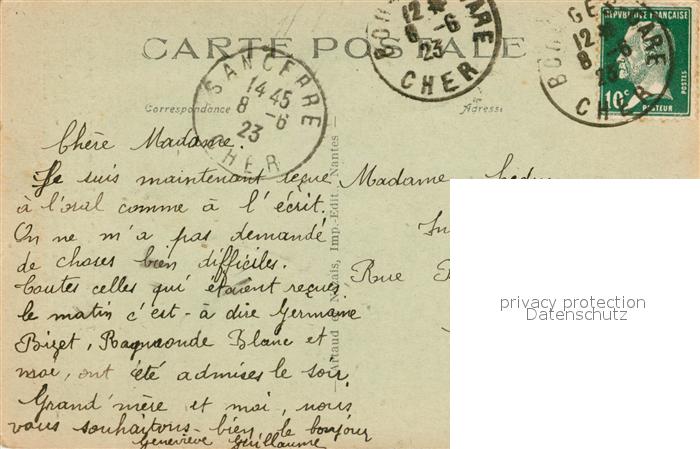 CARTE POSTALE
BOURGES GARE
12 *
8 -6
23
CHER
BOURGES GARE
12 *
8 -6
23
CHER
RÉPUBLIQUE FRANÇAISE
POSTES
10c
PASTEUR
SANCERRE
14 45
8 -6
23
CHER
Correspondance
Adresse
Imp.-Edit., Nantes
Chère Madame.
Je suis maintenant reçue
à l'oral comme à l'écrit.
On ne m'a pas demandé
de choses bien difficiles.
Toutes celles qui étaient reçues
le matin c'est-à dire Germaine
Bizet, Raymonde Blanc et
moi, ont été admises le soir.
Grand'mère et moi, nous
vous souhaitons bien le bonjour
Geneviève Guillaume
Madame
Rue
privacy protection
Datenschutz